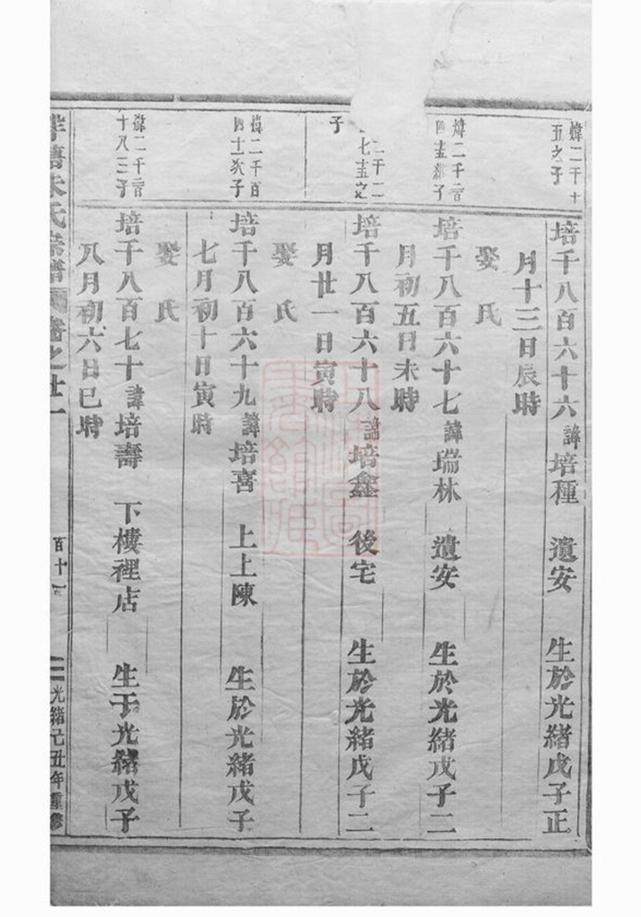 煒二千十
五之子
培千八百六十六諱培種 遺安 生於光緒戊子正
月十三日辰時
娶氏
煒二千
培千八百六十七諱瑞林 遺安 生於光緒戊子二
月初五日未時
二千二
七圭之
子
培千八百六十八諱培鑫 後宅 生於光緒戊子二
月廿一日寅時
娶氏
煒二千百
四十次子
培千八百六十九諱培喜 上上陳 生於光緒戊子
七月初十日寅時
娶氏
煒二千
十八三子
培千八百七十諱培壽 下樓裡店 生于光緒戊子
八月初六日巳時
朱氏宗譜 卷之廿一
百十
光緒己丑年重修